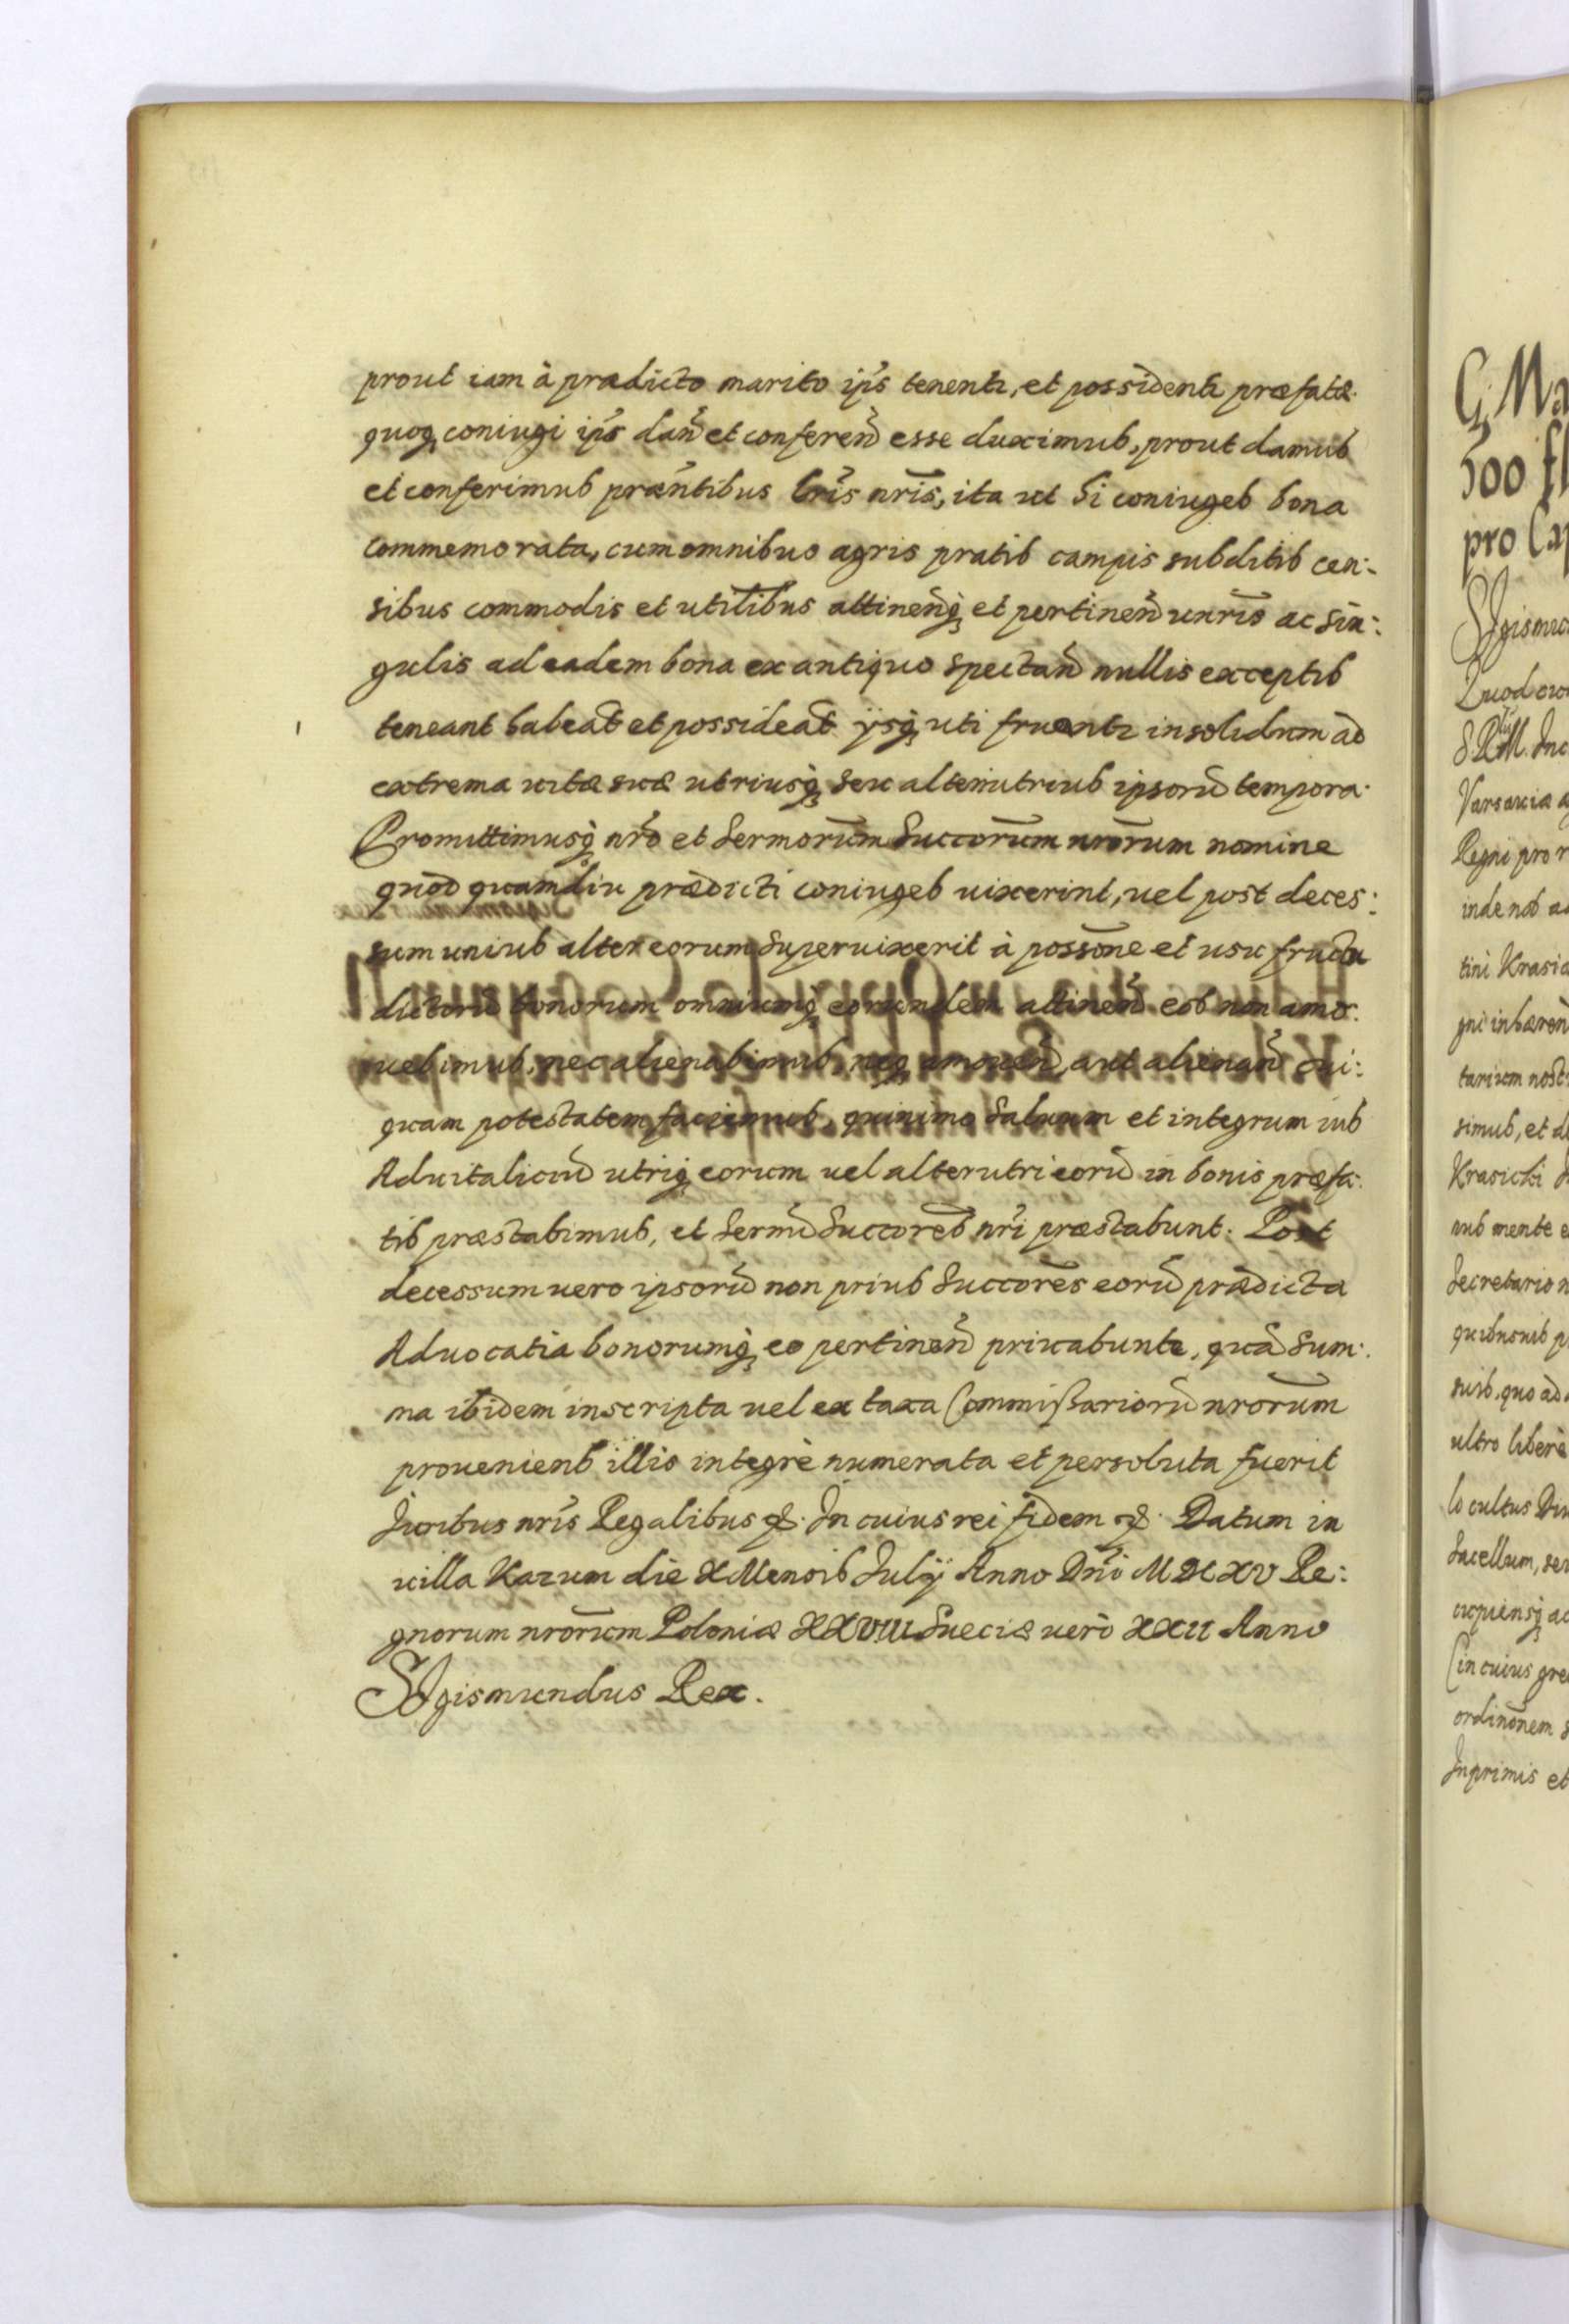 prout iam à prædicto marito ip̃s tenentr, et possidentr præfatæ
quoq, coniugi ip̃s dañ et conferen̄ esse duximus, prout damus
et conferimus præñtibus Lrĩs nrĩs, ita ut hi coniuges bona
commemorata, cum omnibus agris pratis campis subditis cen:
sibus commodis et utilibus attineñq, et pertineñ unĩris ac sin:
gulis ad eadem bona ex antiquo spectañ nullis exceptis
teneant habeat̃ et possideat̃ ijsq, uti fruantr insolidum ad
extrema uitæ suæ utriusq, seu alterutrius ipsorũ tempora.
Promittimusq̀ nrõ et Sermorũm Succorũm nrõrum nomine
quod quamdiu prædicti coniuges uixerint, uel post deces:
sum unius alter eorum superuixerit à possõne et usu fructu
dictorũ bonorum omniumq, eorundem attineñ eos non amo:
uebimus, nec alienabimus, neq, amoueñ, aut alienañ cui:
quam potestatem faciemus, quinimo saluum et integrum ius
Aduitaliciũ utriq, eorum uel alterutri eorũ in bonis præfa:
tis præstabimus, et Sermĩ Succorẽs nrĩ præstabunt. Post
decessum uero ipsorũ non prius Succorẽs eorũ prædicta
Aduocatia bonorumq, eo pertineñ priuabuntr, quã Sum:
ma ibidem inscripta uel ex taxa Commißariorũ nrõrum
proueniens illis integrè numerata et persoluta fuerit
Juribus nrĩs Regalibus &. In cuius rei fidem &. Datum in
uilla Kazum die X Mensis Julij Anno Dñi MDCXV Re:
gnorum nrõrum Poloniæ XXVIII Sueciæ uerò XXII Anno
Sigismundus Rex.
G. Ma
500 fl
pro Ca
Sigismu
Quod
S.R.M. Inc
Varsauiæ a
Regni pro r
inde nob a
tini Krasic
gni inhæren
tarium nost
simus, et d
Krasicki
nus mente e
Secretario n
quibusuis p
suis, quo ad
ultro liberè
lo cultus Diu
Sacellum, seu
cupiensq, ac
(in cuius gre
ordinõnem s
Inprimis et